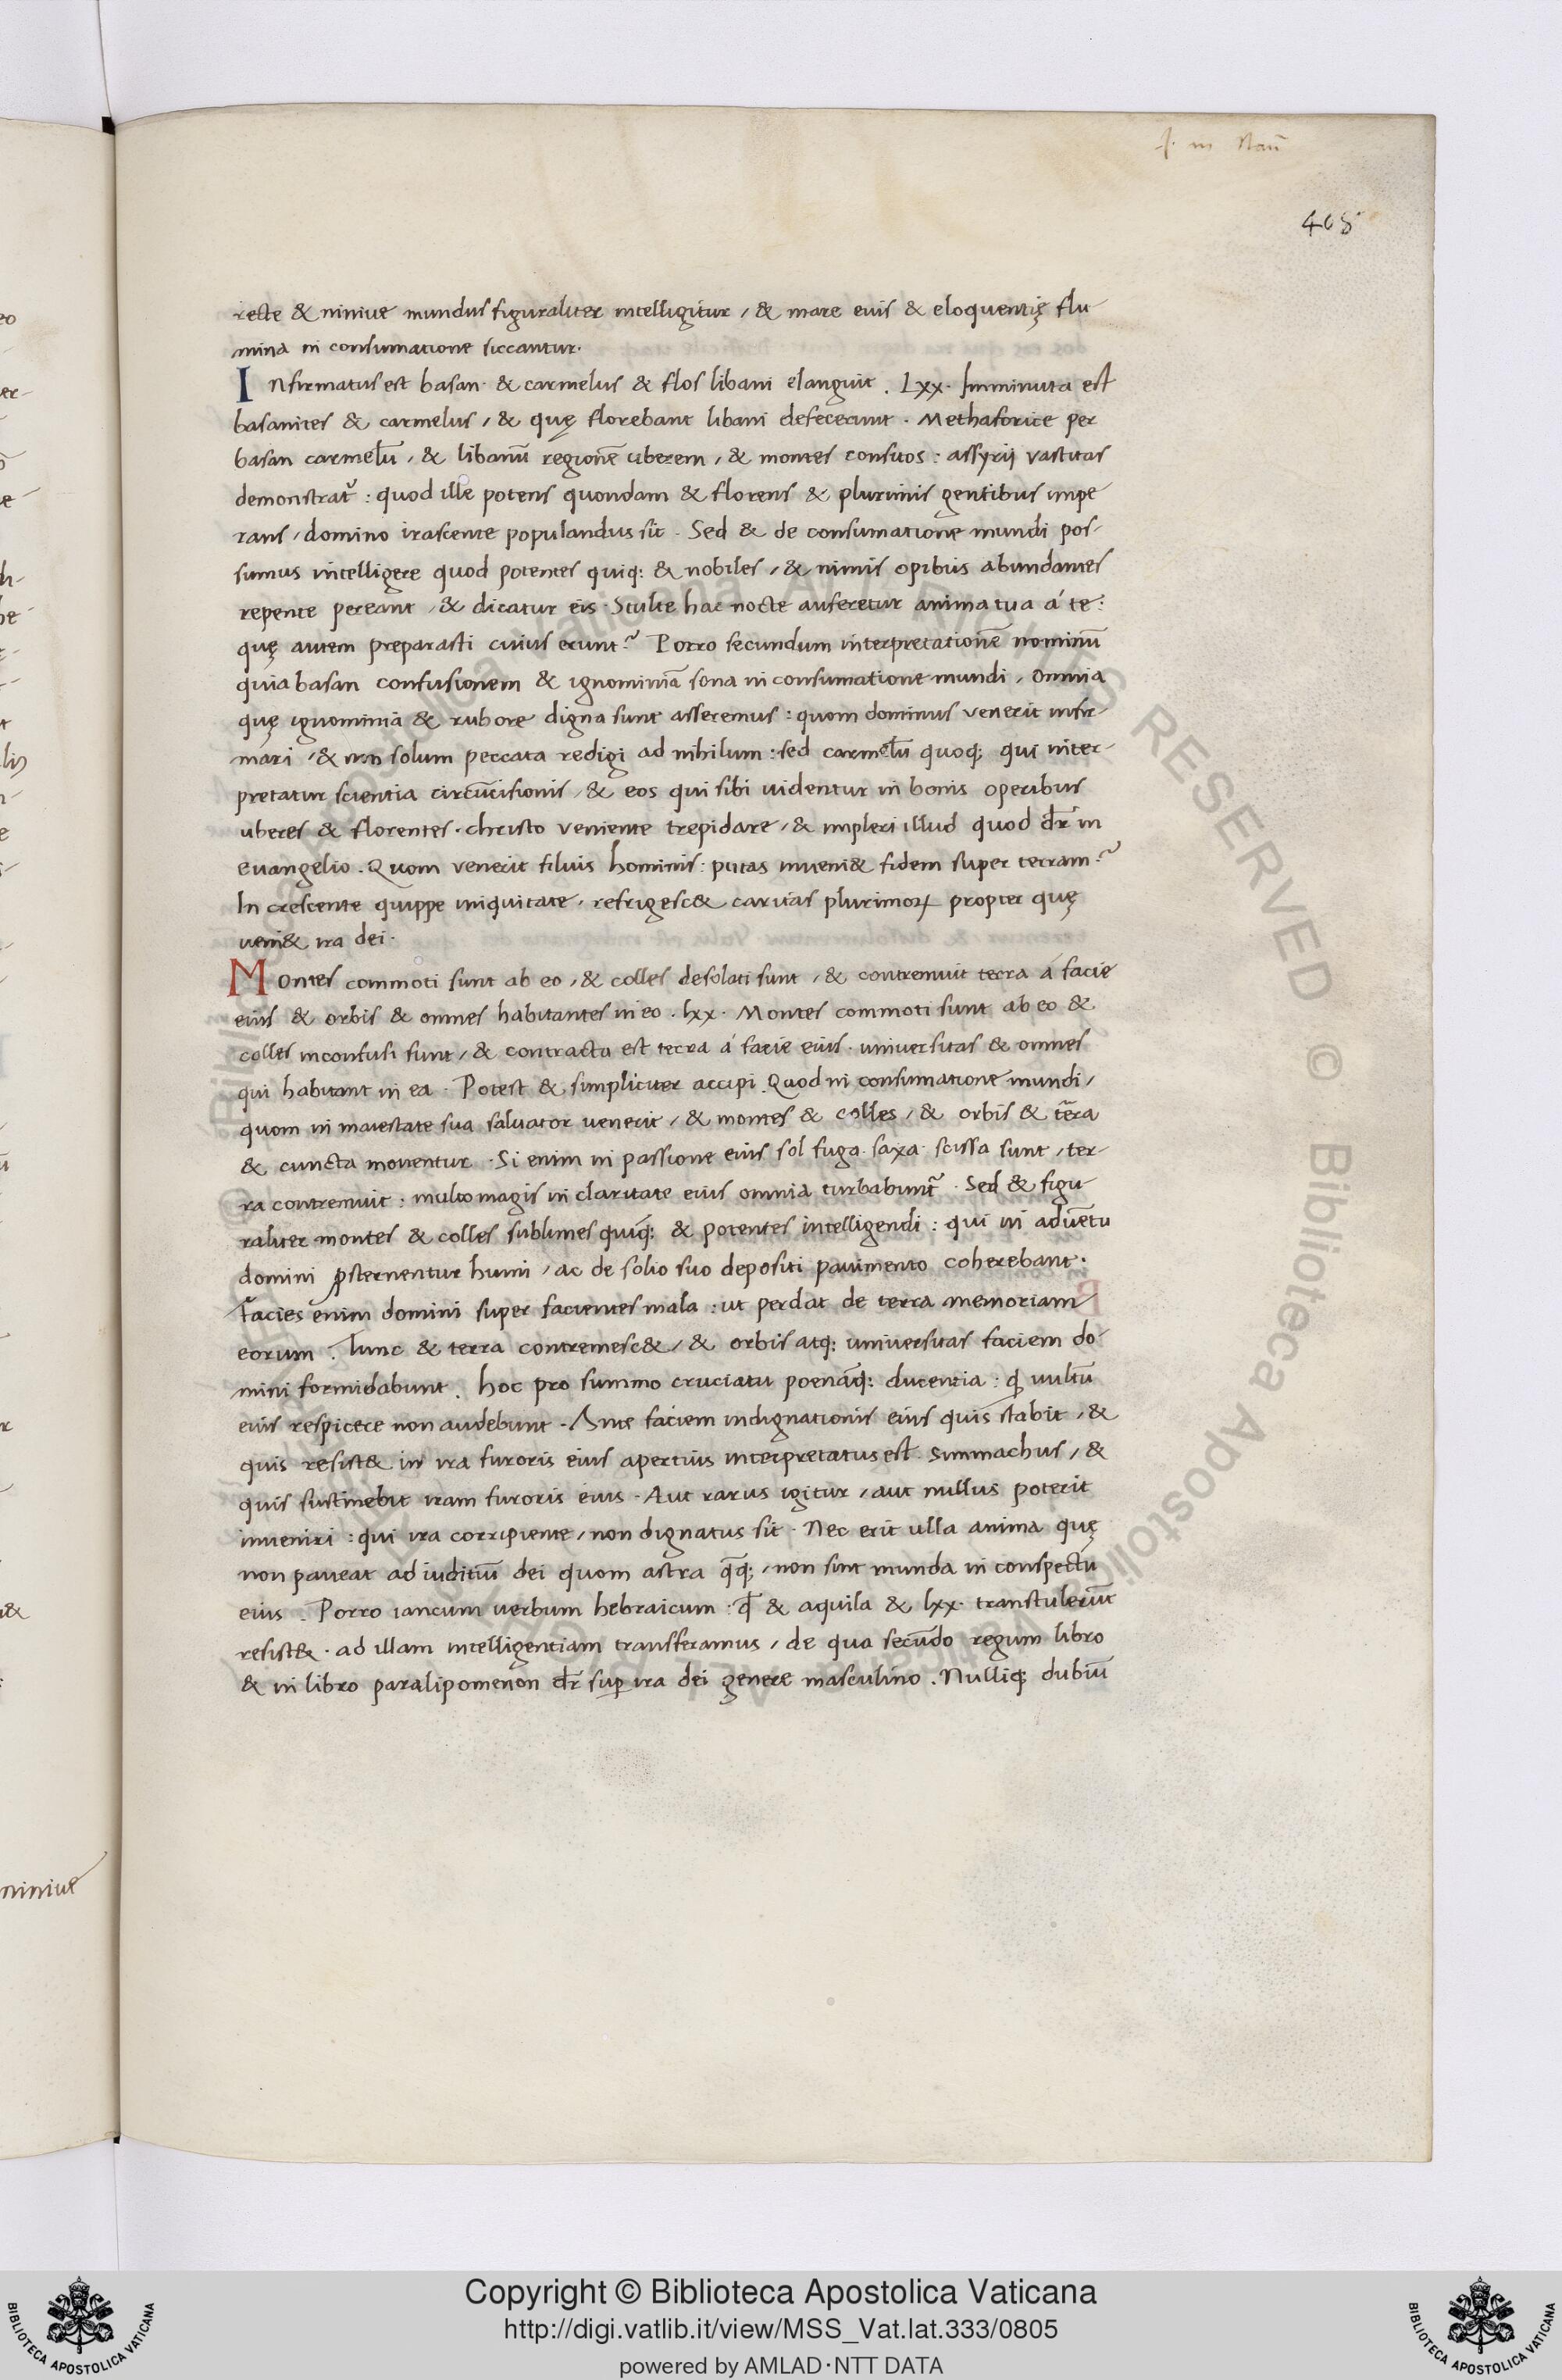 408
recte & niniue mundus figuraliter intelligitur / & mare eius & eloquentię flu
mina in consumatione siccantur.
Infirmatus est basan · & carmelus & flos libani elanguit . Lxx · Imminuta est
basanites & carmelus / & quę florebant libani defecerunt . Methaforice per
basan carmelū / & libanū regionē uberem / & montes consitos : assyrij vastitas
demonstrat᷑ : quod ille potens quondam & florens & plurimis gentibus impe
rans / domino irascente populandus sit . Sed & de consumatione mundi pos-
sumus intelligere quod potentes quiq; & nobiles / & nimis opibus abundantes
repente pereant / & dicatur eis · Stulte hac nocte auferetur anima tua á te :
quę autem preparasti cuius erunt? Porro secundum interpretationē nominū
quia basan confusionem & ignominiā sona in consumatione mundi / omnia
quę ignominiā & rubore digna sunt asseremus : quom dominus venerit infir-
mari / & non solum peccata redigi ad nihilum : sed carmelū quoq; qui inter-
pretatur scientia circūcisionis / & eos qui sibi uidentur in bonis operibus
uberes & florentes · christo veniente trepidare / & impleri illud quod dr̄ in
euangelio . Quom venerit filius hominis : putas inueni& fidem super terram?
In crescente quippe iniquitate / refrigesc& caritas plurimoꝝ propter quę
ueni& ira dei ·
Montes commoti sunt ab eo / & colles desolati sunt / & contremuit terra á facie
eius & orbis & omnes habitantes in eo . lxx · Montes commoti sunt ab eo &
colles inconfusi sunt / & contracta est terra á facie eius · uniuersitas & omnes
qui habitant in ea · Potest & simpliciter accipi . Quod in consumatione mundi /
quom in maiestate sua saluator uenerit / & montes & colles / & orbis & tēra
& cuncta mouentur · Si enim in passione eius sol fuga · saxa · scissa sunt / ter-
ra contremuit : multo magis in claritate eius omnia turbabunt᷑ . Sed & figu
raliter montes & colles sublimes quiq; & potentes intelligendi : qui in aduētu
domini ꝓsternentur humi / ac de solio suo depositi pauimento coherebant ·
Facies enim domini super facientes mala : ut perdat de terra memoriam
eorum . Tunc & terra contremesc& / & orbis atq; uniuersitas faciem do-
mini formidabunt . hoc pro summo cruciatu poenāq; ducentia : ꝙ uultū
eius respicere non audebunt · Ante faciem indignationis eius quis stabit / &
quis resist& in ira furoris eius apertius interpretatus est Simmachus / &
quis sustinebit iram furoris eius · Aut rarus igitur / aut nullus poterit
inueniri : qui ira corripiente / non dignatus sit · Nec erit ulla anima quę
non paueat ad iuditiū dei quom astra q̄q; / non sint munda in conspectu
eius . Porro iancum uerbum hebraicum : qđ & aquila & lxx · transtulerūt
resist& · ad illam intelligentiam transferamus / de qua secūdo regum libro
& in libro paralipomenon dr̄ suꝑ ira dei genere masculino . Nulliq; dubiū
niniue
Copyright © Biblioteca Apostolica Vaticana
http://digi.vatlib.it/view/MSS_Vat.lat.333/0805
powered by AMLAD·NTT DATA